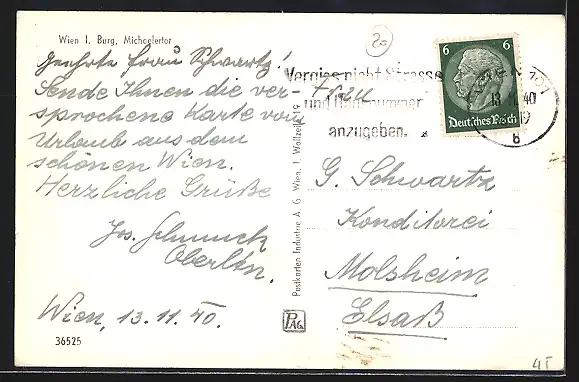 Wien I. Burg, Michaelertor
Geehrte Frau Schwartz!
Sende Ihnen die ver-
sprochene Karte vom
Urlaub aus dem
schönen Wien.
Herzliche Grüße
Jos. Schmuck
Oberltn.
Wien, 13.11.40.
36525
Postkarten Industrie A. G. Wien, I. Wollzeile 19
PAG
20
Vergiss nicht Strasse
und Hausnummer
anzugeben.
6 6
Deutsches Reich
13.11.40
b
Frau
G. Schwartz
Konditorei
Molsheim
Elsaß